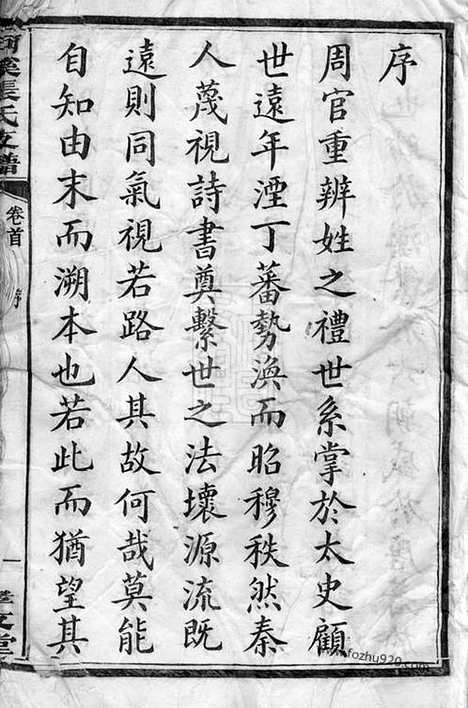 序
周官重辨姓之禮世系掌於太史顧
世遠年湮丁蕃勢渙而昭穆秩然秦
人蔑視詩書奠繫世之法壞源流既
遠則同氣視若路人其故何哉莫能
自知由末而溯本也若此而猶望其
張氏支譜
卷首
序
一
文堂
www.fozhu920.com